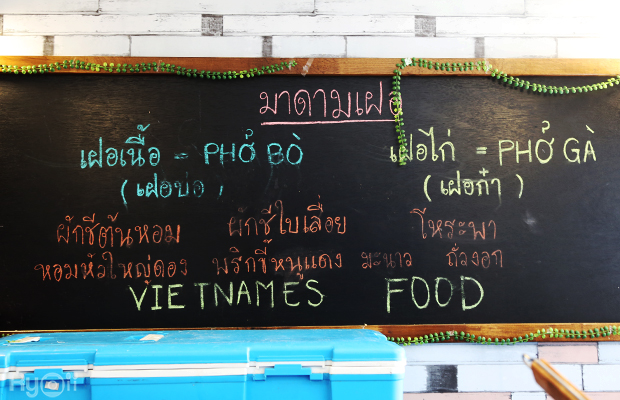 มาดามเฝอ
เฝอเนื้อ = PHỞ BÒ
เฝอไก่ = PHỞ GÀ
(เฝอบ่อ)
(เฝอก๋า)
ผักชีต้นหอม ผักชีใบเลื่อย โหระพา
หอมหัวใหญ่ดอง พริกขี้หนูแดง มะนาว ถั่วงอก
VIETNAMES FOOD